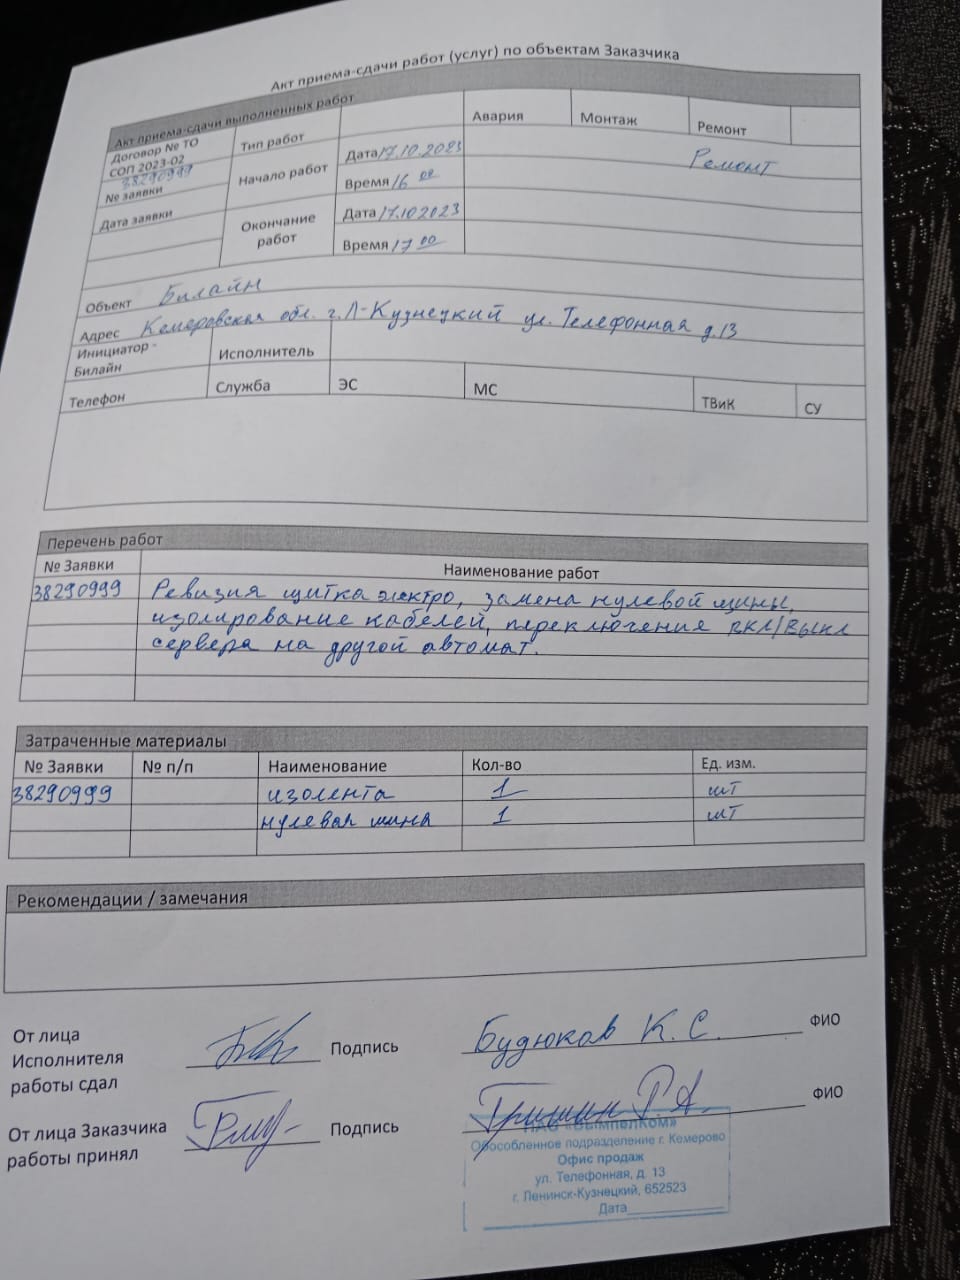 Акт приема-сдачи работ (услуг) по объектам Заказчика
Акт приема-сдачи выполненных работ
Договор № ТО СОП 2023-02
Тип работ
Авария
Монтаж
Ремонт
38290999
№ заявки
Начало работ
Дата 17.10.2023
Ремонт
Время 16 00
Дата заявки
Окончание работ
Дата 17.10.2023
Время 17 00
Объект Билайн
Адрес Кемеровская обл. г.Л-Кузнецкий ул. Телефонная д.13
Инициатор - Билайн
Исполнитель
Телефон
Служба
ЭС
МС
ТВиК
СУ
Перечень работ
№ Заявки
Наименование работ
38290999 Ревизия щитка электро, замена нулевой шины,
изолирование кабелей, переключения вкл/выкл
сервера на другой автомат.
Затраченные материалы
№ Заявки
№ п/п
Наименование
Кол-во
Ед. изм.
38290999 изолента 1 шт
нулевая шина 1 шт
Рекомендации / замечания
От лица
Исполнителя
работы сдал
Подпись
Будюков К. С.
ФИО
От лица Заказчика
работы принял
Подпись
Гришин Р.А.
ФИО
ПАО «ВымпелКом»
Обособленное подразделение г. Кемерово
Офис продаж
ул. Телефонная, д. 13
г. Ленинск-Кузнецкий, 652523
Дата